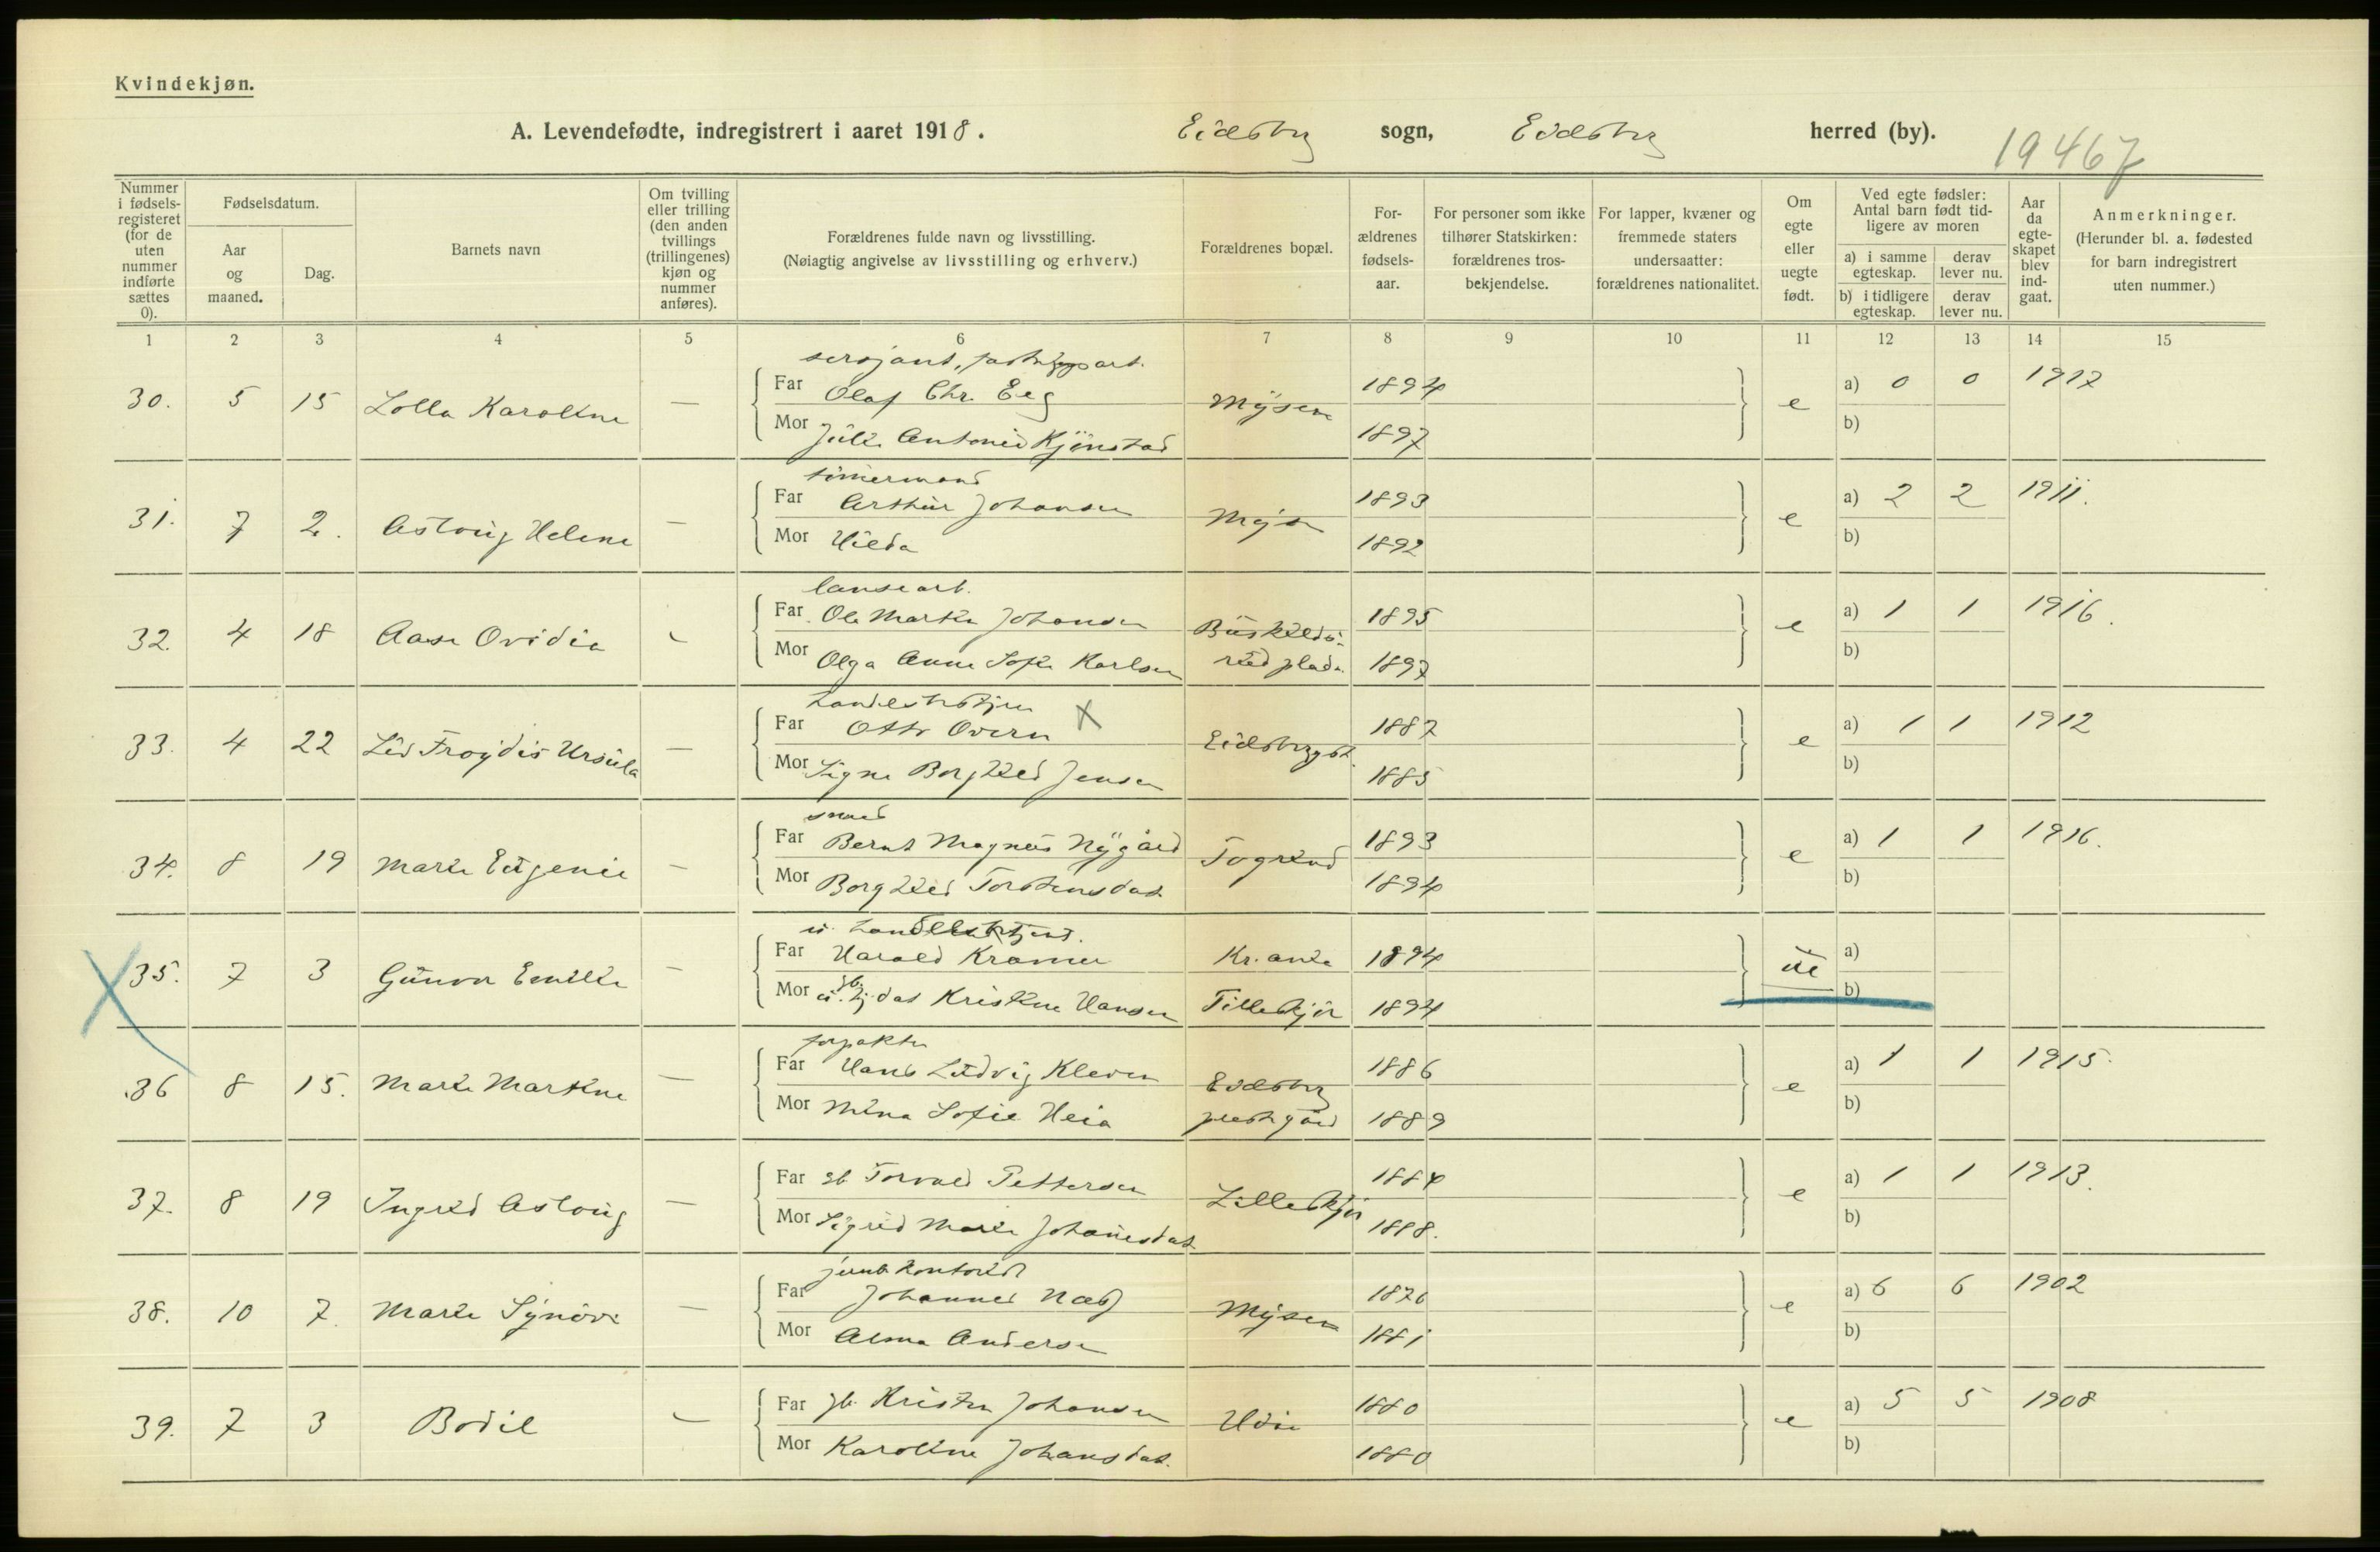 Kvindekjøn.
A. Levendefødte, indregistrert i aaret 1918. Eidsberg sogn, Eidsberg herred (by).
19467
Nummer i fødselsregisteret (for de uten nummer indførte sættes 0).
Fødselsdatum.
Aar og maaned.
Dag.
Barnets navn
Om tvilling eller trilling (den anden tvillings (trillingenes) kjøn og nummer anføres).
Forældrenes fulde navn og livsstilling.
(Nøiagtig angivelse av livsstilling og erhverv.)
Forældrenes bopæl.
Forældrenes fødselsaar.
For personer som ikke tilhører Statskirken: forældrenes trosbekjendelse.
For lapper, kvæner og fremmede staters undersaatter: forældrenes nationalitet.
Om egte eller uegte født.
Ved egte fødsler: Antal barn født tidligere av moren
a) i samme egteskap.
derav lever nu.
b) i tidligere egteskap.
derav lever nu.
Aar da egteskapet blev indgaat.
Anmerkninger.
(Herunder bl. a. fødested for barn indregistrert uten nummer.)
1 2 3 4 5 6 7 8 9 10 11 12 13 14 15
sersjant,
30. 5 15 Lolla Karoline — Far Olaf Chr. Eeg Mysen 1894 e a) 0 0 1917
Mor Julie Antonie Kjönstad 1897 b)
tømermand
31. 7 2. Aslaug Helene — Far Arthur Johansen Mysen 1893 e a) 2 2 1911.
Mor Hilda 1892 b)
32. 4 18 Aase Ovidia — Far Ole Martin Johansen 1895 e a) 1 1 1916.
Mor Olga Anne Sofie Karlsen 1897 b)
33. 4 22 Liv Frøydis Ursula — Far Otto Overn X Eidsberg st. 1887 e a) 1 1 1912
Mor Signe Borghild Jensen 1885 b)
smed
34. 8 19 Marie Eugenie — Far Bernt Magnus Nygård 1893 e a) 1 1 1916.
Mor Borghild Torstensdat 1894 b)
u. handelsbetjent.
35. 7 3 Gunvor Emilie — Far Harald Kramer Kr.ania 1894 ue a)
Mor u. dat Kristine Hansen 1894 b)
forpakter
36 8 15. Marie Martine — Far Hans Ludvig Kleven Eidsberg 1886 e a) 1 1 1915.
Mor Mina Sofie Heia prestgård 1889 b)
37. 8 19 Ingrid Aslaug — Far Torvald Pettersen 1884 e a) 1 1 1913.
Mor Sigrid Marie Johannesdat b)
jernb.kontorist
38. 10 7. Marie Synöve — Far Johannes Næs Mysen 1876 e a) 6 6 1902
Mor Alma Andersen 1881 b)
39. 7 3 Bodil — Far Kristen Johansen 1880 e a) 5 5 1908
Mor Karoline Johansdat. 1880 b)